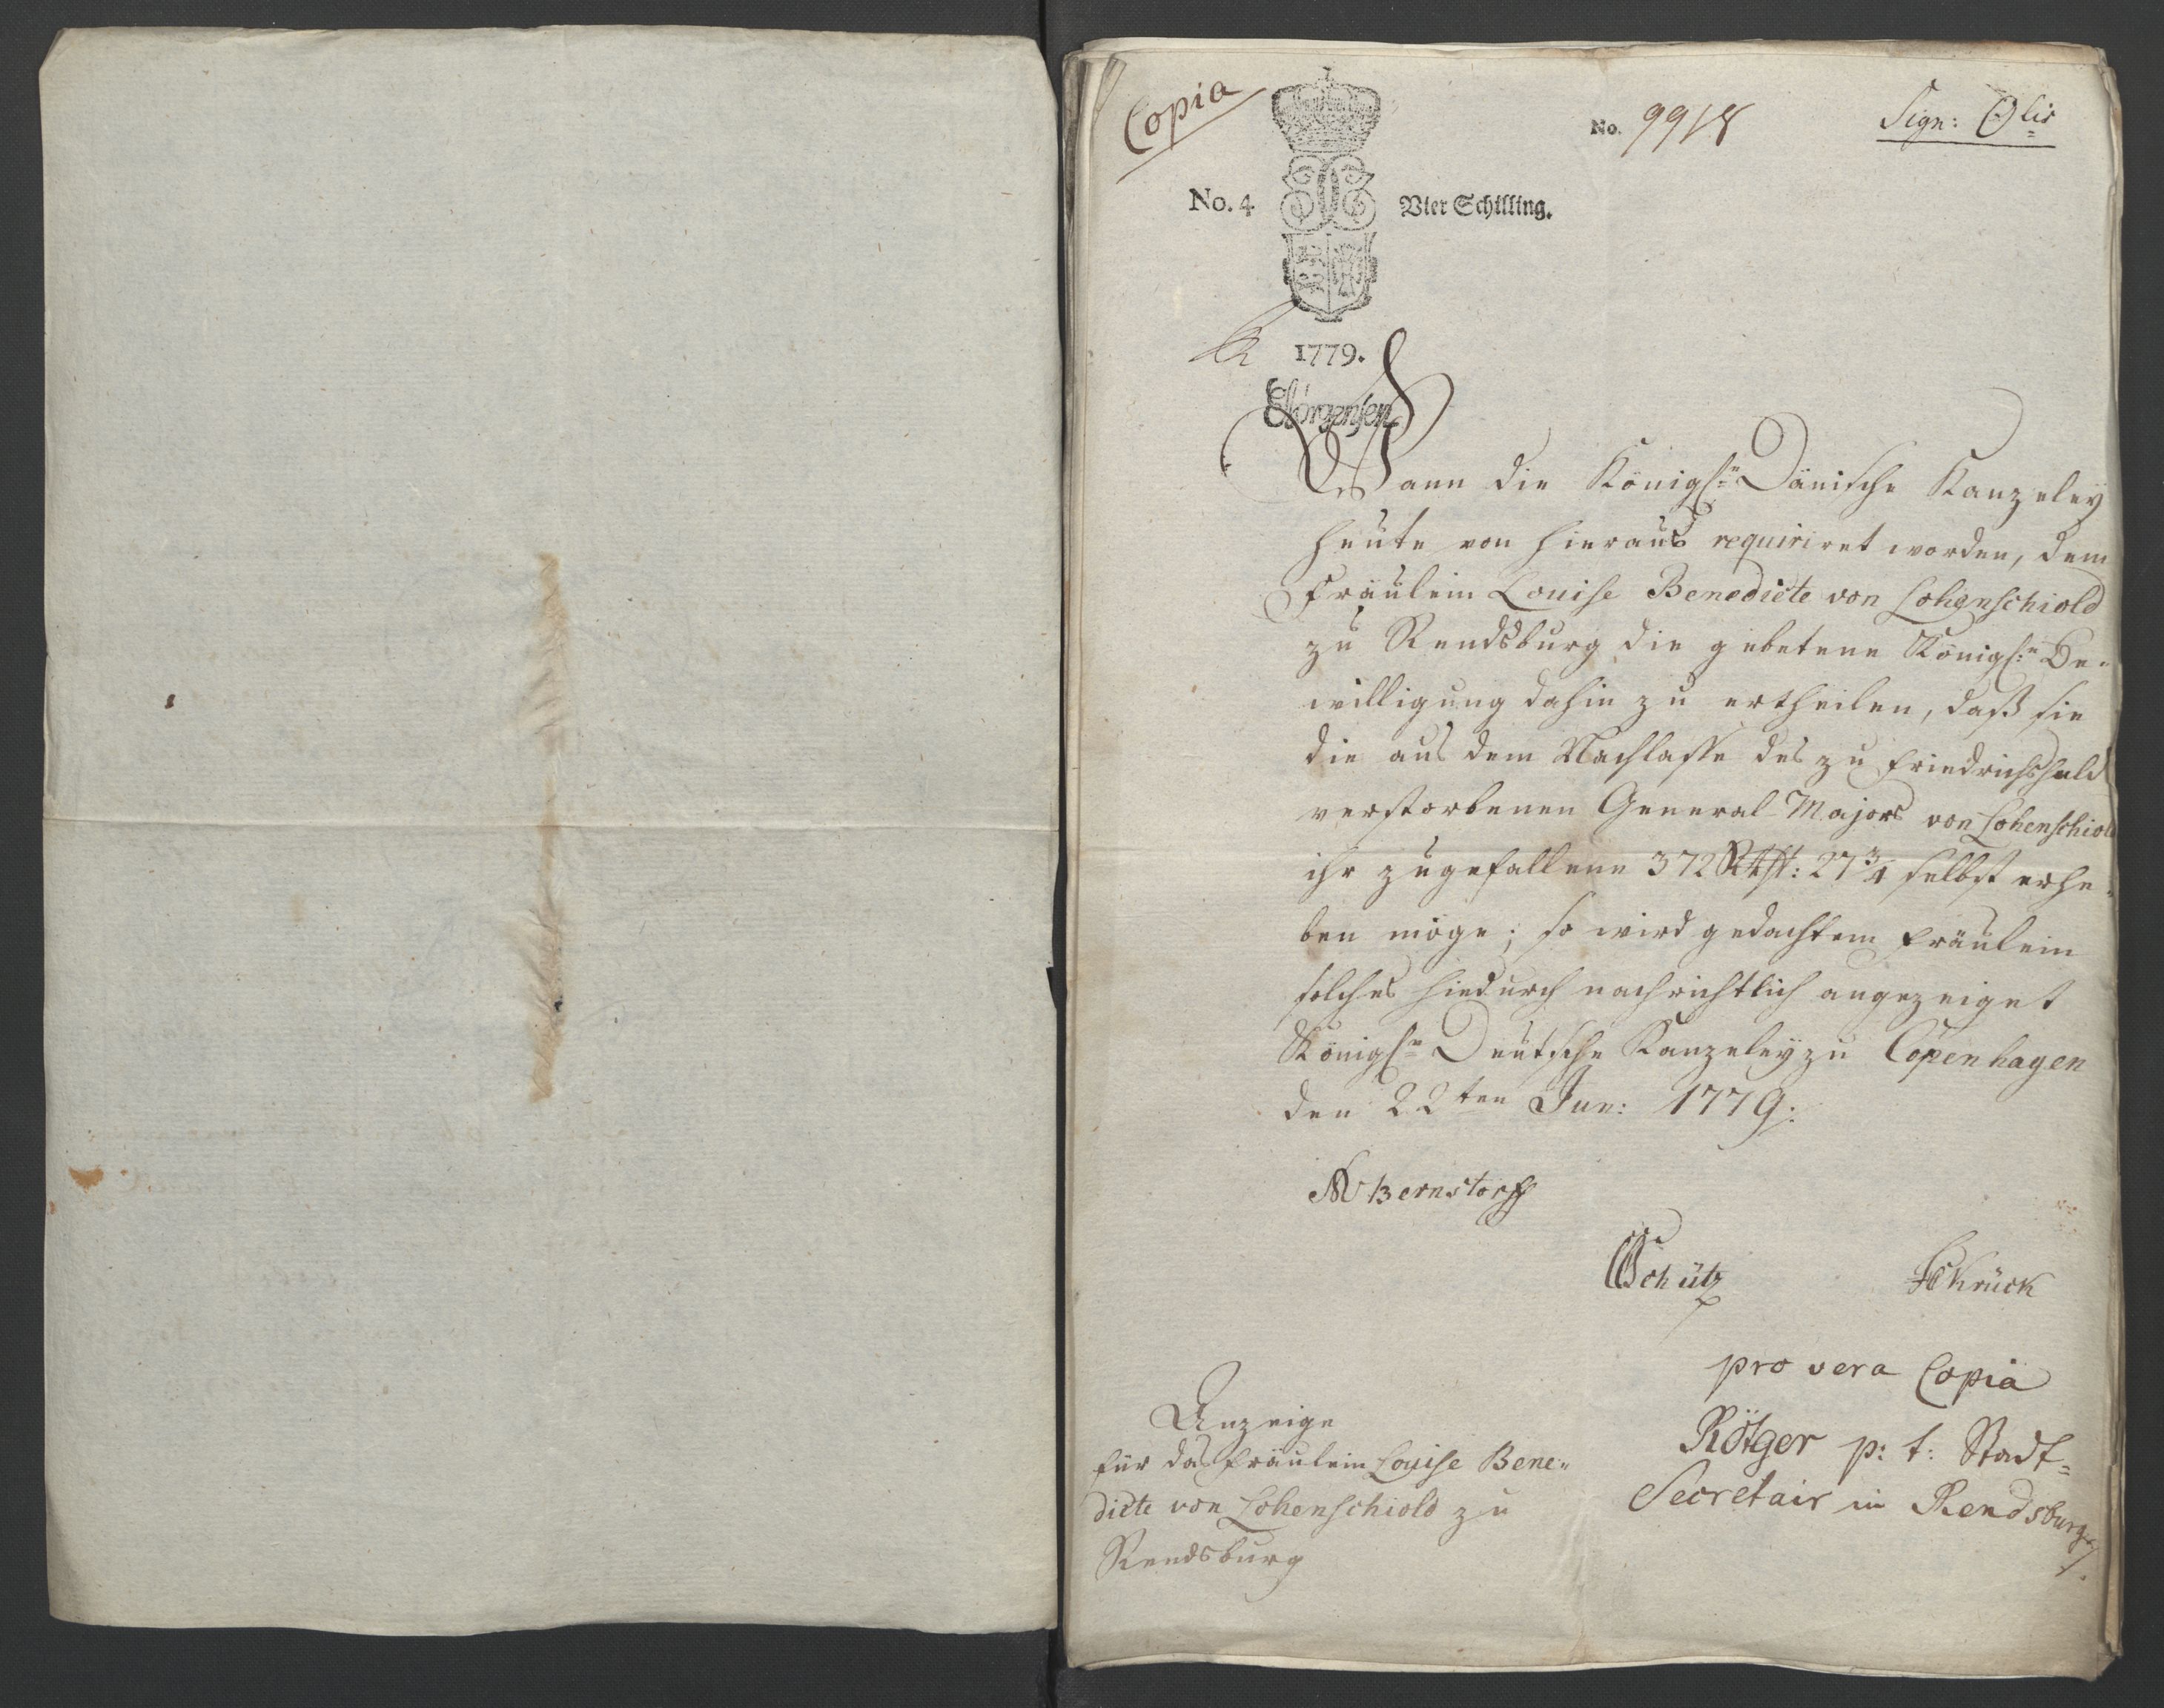 Copia
No. 9918
Sign: ☉lis
No. 4 Vier Schilling.
1779.
Wann die Königl:n Dänische Kanzeley
heute von hieraus requiriret worden, dem
Fräulein Louise Benedicte von Lohenschiold
zu Rendsburg die gebetene Königl:e Be-
willigung dahin zu ertheilen, daß sie
die aus dem Nachlasse des zu Friedrichshald
verstorbenen General-Majors von Lohenschiold
ihr zugefallene 372 Rthlr: 27 3/4 selbst erhe-
ben möge; so wird gedachtem Fräulein
solches hiedurch nachrichtlich angezeiget
Königl:e Deutsche Kanzeley zu Copenhagen
den 22ten Jun: 1779.
Bernstorff
Schütz Schrück
pro vera Copia
Rötger p: t: Stadt-
Secretair in Rendsburg
Anzeige
für das Fräulein Louise Bene-
dicte von Lohenschiold zu
Rendsburg